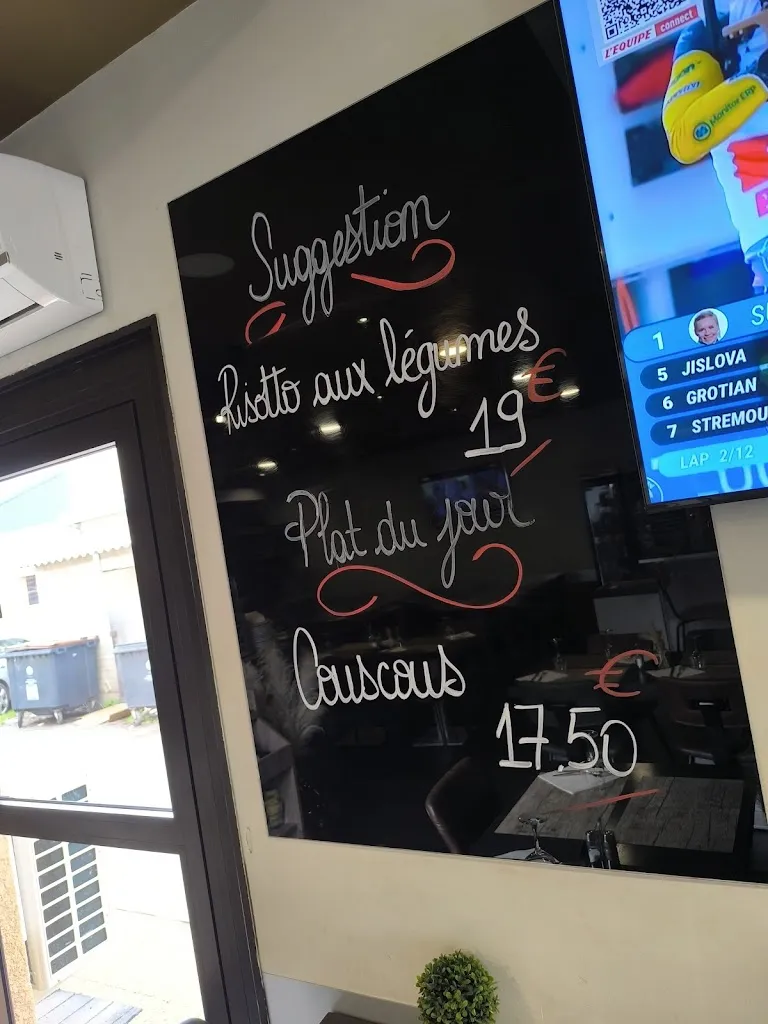 Suggestion
Risotto aux légumes
19 €
Plat du jour
Couscous
17.50 €
L'ÉQUIPE connect
MonitorERP
1
5 JISLOVA
6 GROTIAN
7 STREMOU
LAP 2/12